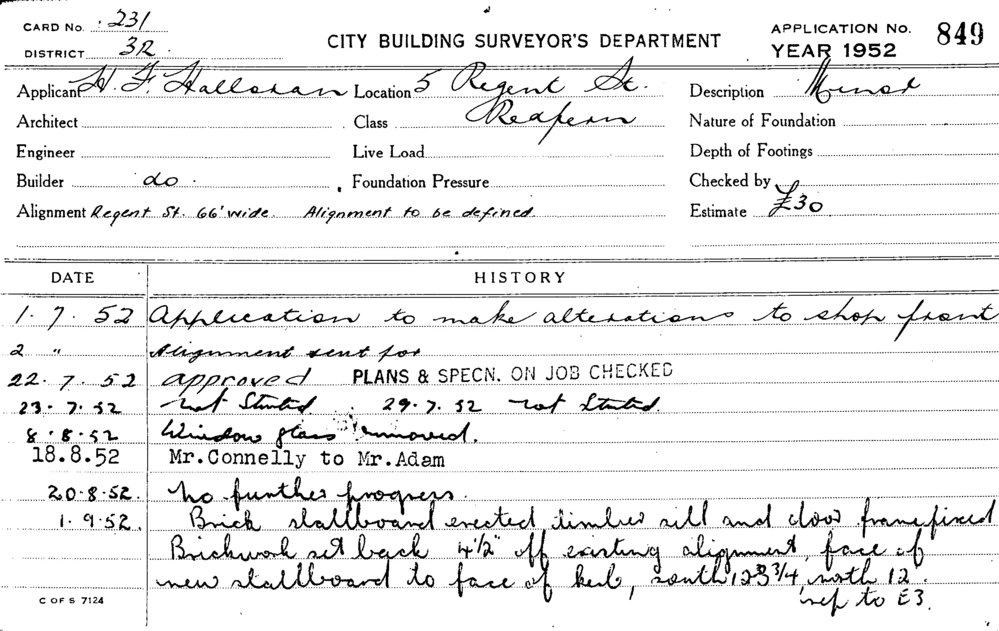 CARD No. 231
DISTRICT 3R.
CITY BUILDING SURVEYOR'S DEPARTMENT
APPLICATION No. 849
YEAR 1952
Applicant H. F. Halloran Location 5 Regent St. Description Minor
Architect Class Redfern Nature of Foundation
Engineer Live Load Depth of Footings
Builder do. Foundation Pressure Checked by
Alignment Regent St. 66' wide. Alignment to be defined. Estimate £30
DATE HISTORY
1. 7. 52 Application to make alterations to shop front
2 " Alignment sent for
22. 7. 52 approved PLANS & SPECN. ON JOB CHECKED
23. 7. 52 not Started. 29. 7. 52 not Started.
8. 8. 52 Window glass removed.
18.8.52 Mr.Connelly to Mr.Adam
20.8.52. No further progress.
1. 9. 52. Brick stallboard erected, timber sill and door frame fixed
Brickwork set back 4½" off existing alignment, face of
new stallboard to face of kerb, south 12 3¾, north 12.
ref to E3.
C OF S 7124